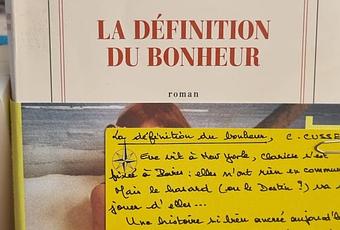 LA DÉFINITION
DU BONHEUR
roman
La définition du bonheur, C. CUSSE
Eve vit à New York, Clarisse s'est
fixée à Paris : elles n'ont rien en commun
Mais le hasard (ou le Destin ?) va s
jouer d'elles...
Une histoire si bien ancrée aujourd'h